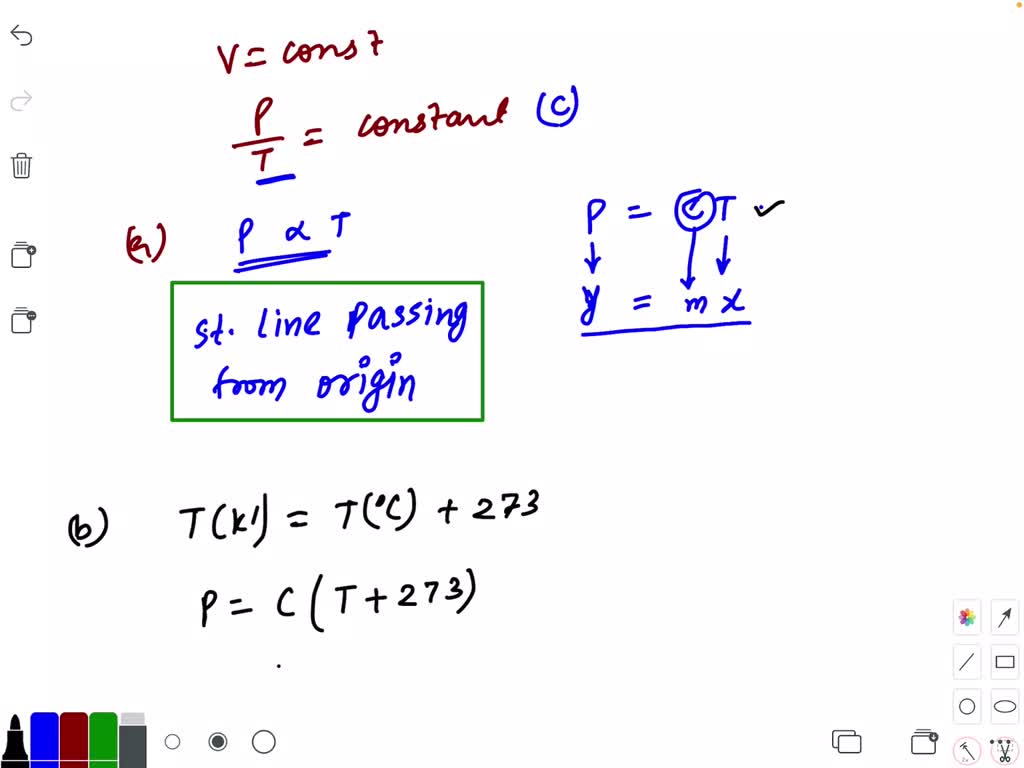 V = const
P/T = constant (C)
(a) P ∝ T
st. line passing
from origin
P = CT ✓
y = mx
(b) T(K) = T(°C) + 273
P = C(T+273)